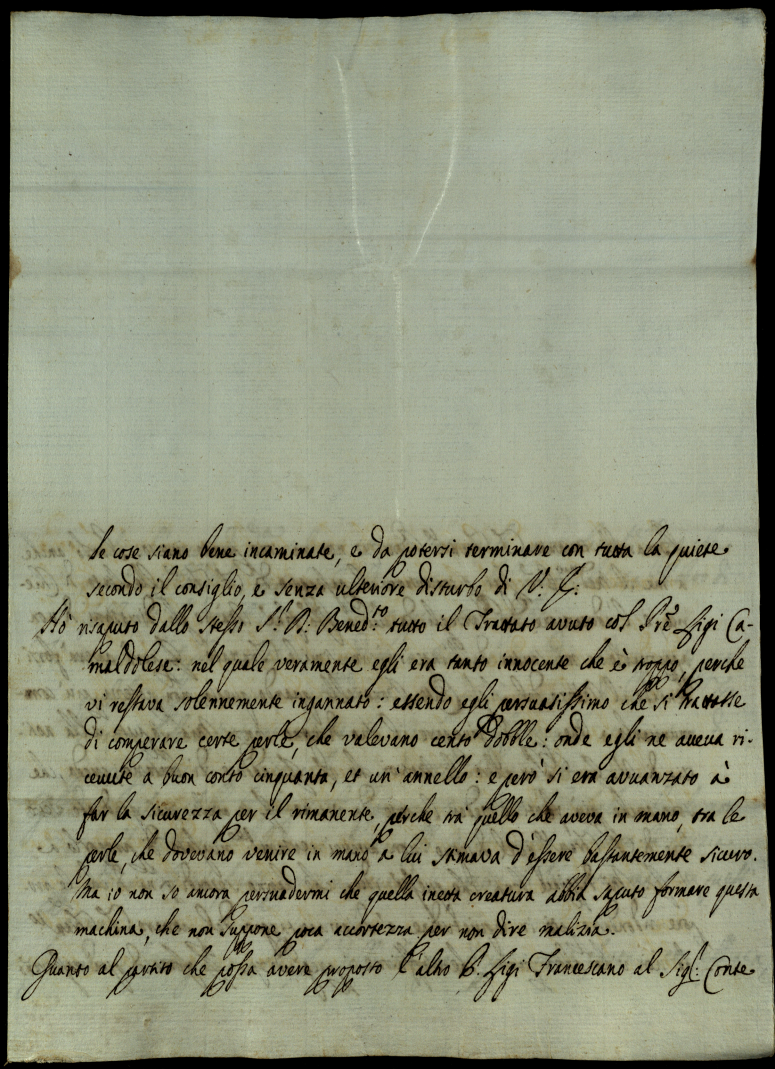 le cose siano bene incaminate, e da potersi terminare con tutta la quiete
secondo il consiglio, e senza ulteriore disturbo di V. S.
Hò risaputo dallo stesso S.r B. Bened.to tutto il Trattato avuto col Prē Ligi Ca-
maldolese: nel quale veramente egli era tanto innocente che è troppo, perche
vi restava solennemente ingannato: essendo egli persuasissimo che si trattasse
di comperare certe perle, che valevano cento dobble: onde egli ne aveva ri-
cevute a buon conto cinquanta, et un' annello: e però si era avvanzato à
far la sicurezza per il rimanente, perche trà quello che aveva in mano, tra le
perle, che dovevano venire in mano a lui stimava d'essere bastantemente sicuro.
Ma io non so ancora persuadermi che quella inetta creatura abbia saputo formare questa
machina, che non suppone poca accortezza per non dire malizia.
Quanto al partito che possa avere proposto l'altro P. Ligi Francescano al Sig.r Conte